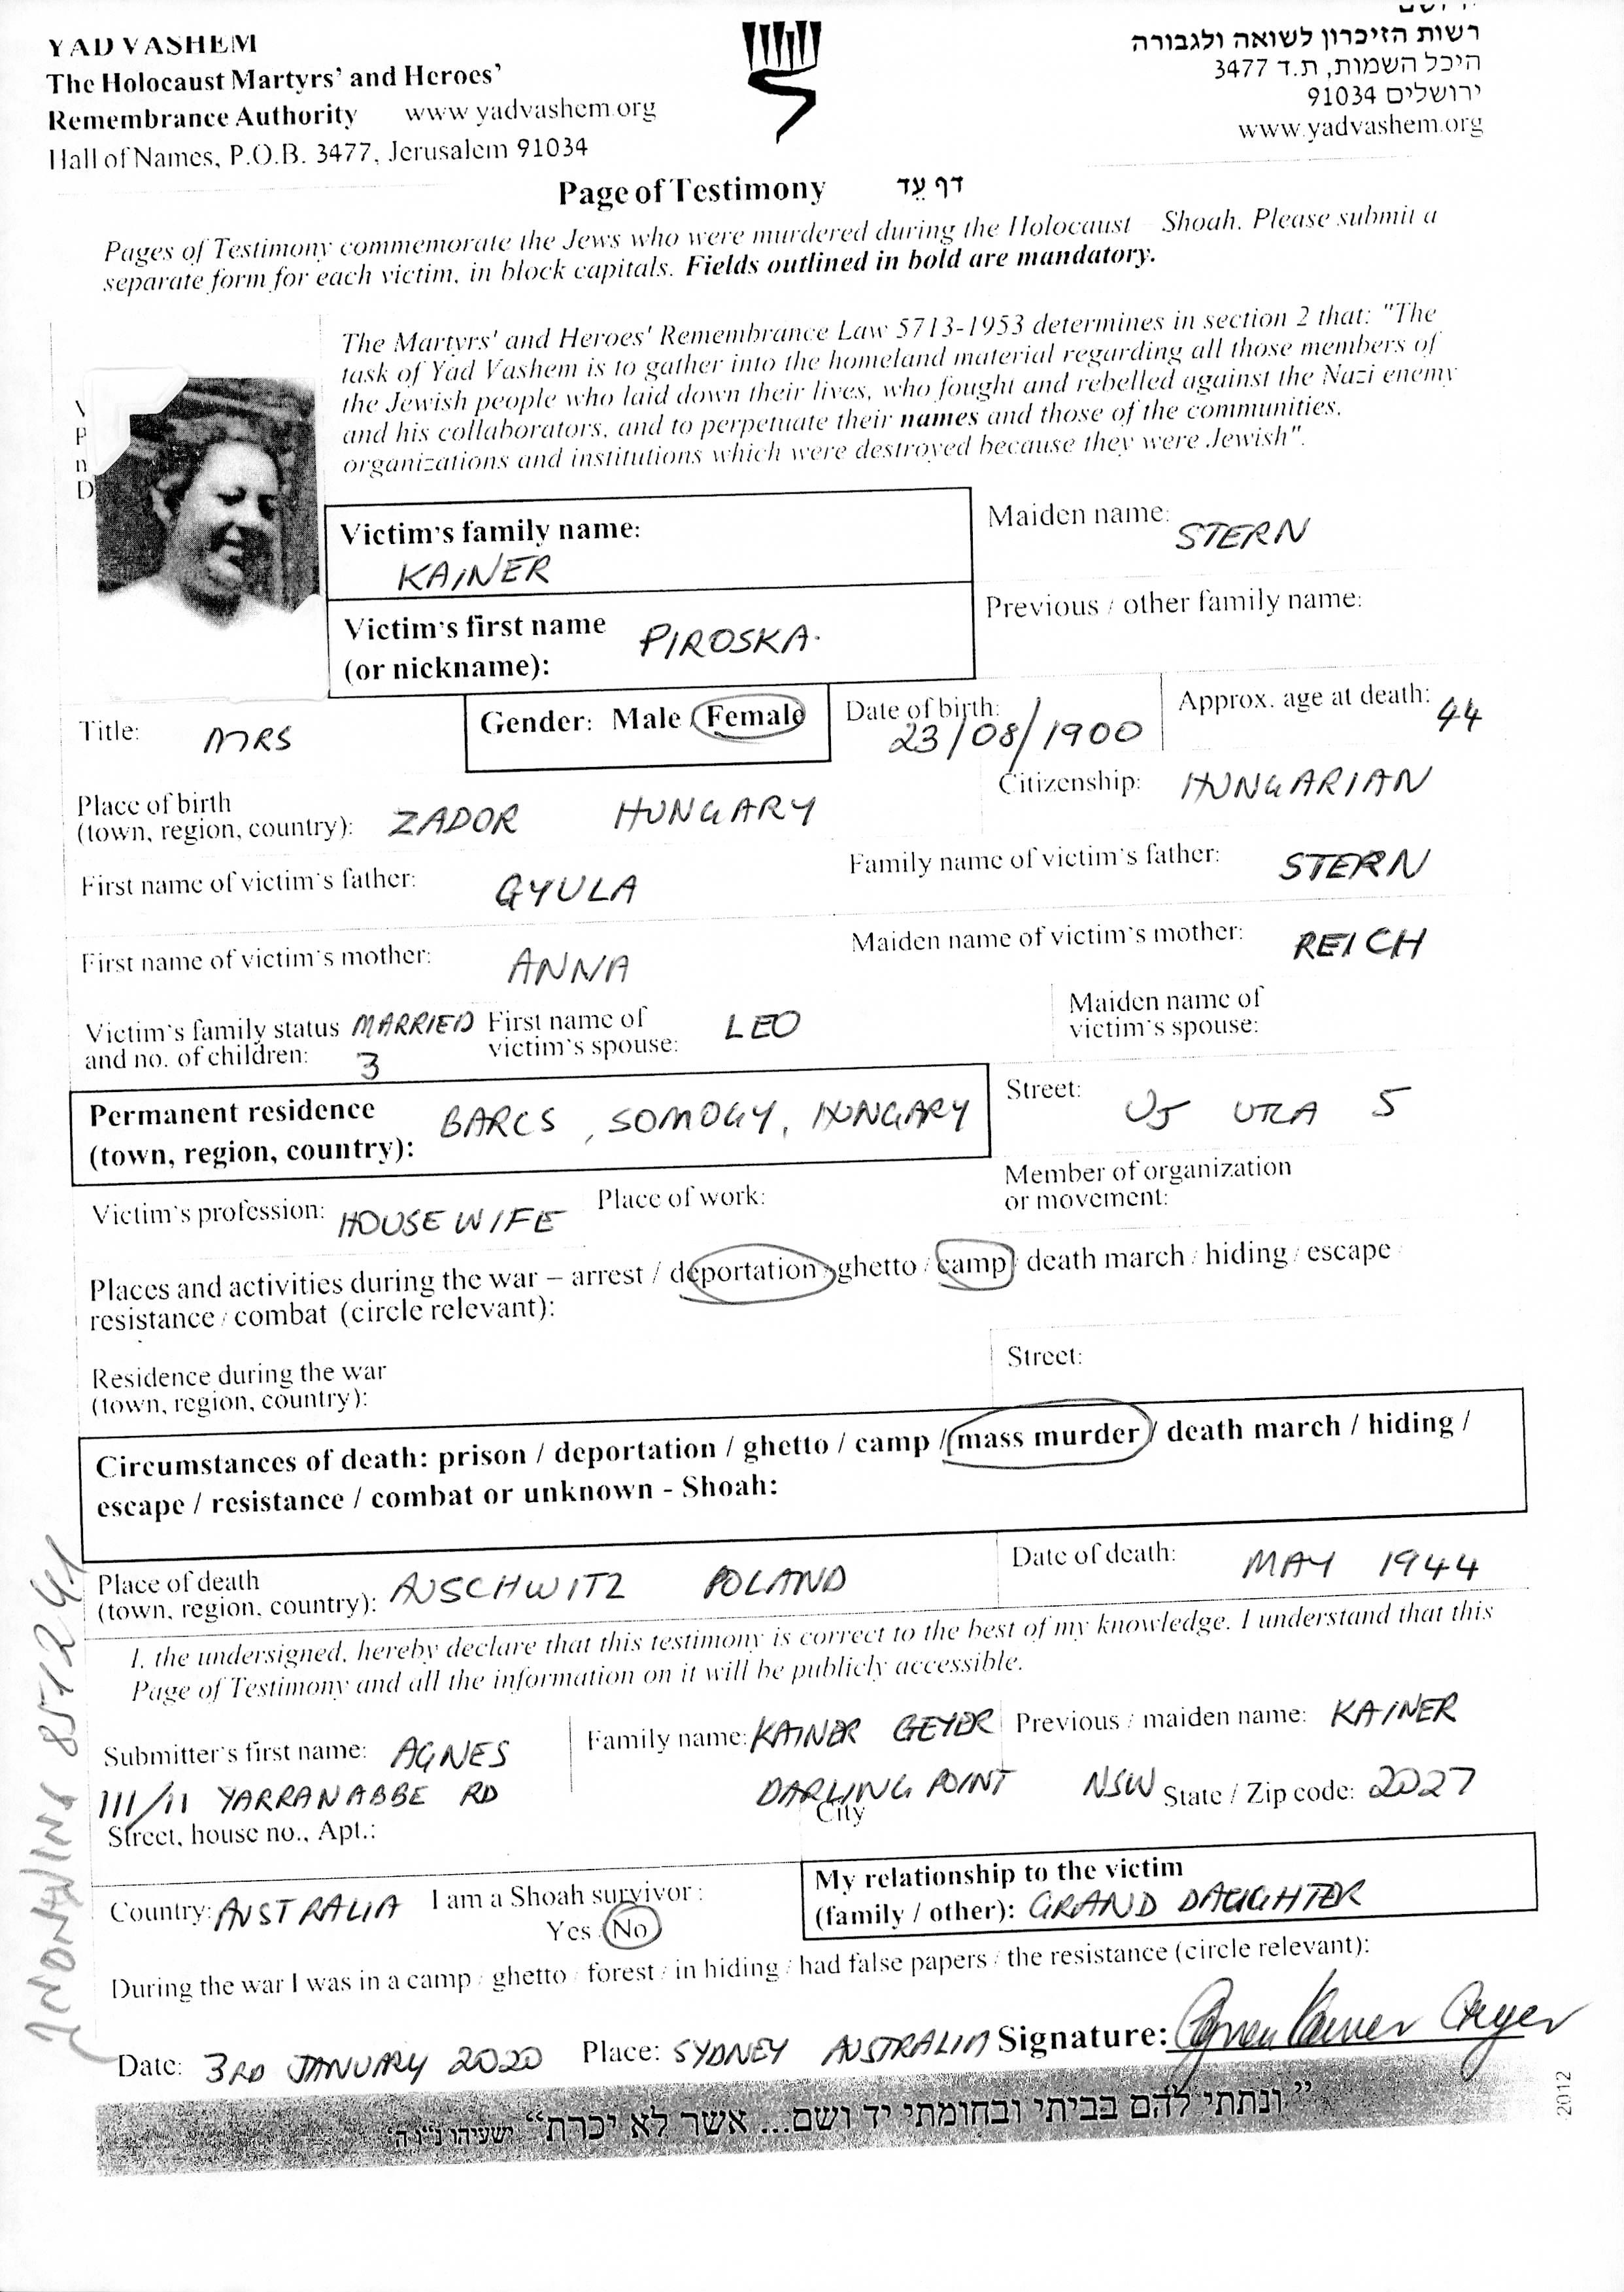 YAD VASHEM
The Holocaust Martyrs' and Heroes'
Remembrance Authority www.yadvashem.org
Hall of Names, P.O.B. 3477, Jerusalem 91034
רשות הזיכרון לשואה ולגבורה
היכל השמות, ת.ד 3477
ירושלים 91034
www.yadvashem.org
Page of Testimony דף עֵד
Pages of Testimony commemorate the Jews who were murdered during the Holocaust - Shoah. Please submit a
separate form for each victim, in block capitals. Fields outlined in bold are mandatory.
The Martyrs' and Heroes' Remembrance Law 5713-1953 determines in section 2 that: "The
task of Yad Vashem is to gather into the homeland material regarding all those members of
the Jewish people who laid down their lives, who fought and rebelled against the Nazi enemy
and his collaborators, and to perpetuate their names and those of the communities,
organizations and institutions which were destroyed because they were Jewish".
Victim's family name:
KAINER
Maiden name: STERN
Victim's first name
(or nickname): PIROSKA.
Previous / other family name:
Title: MRS
Gender: Male / Female
Date of birth:
23/08/1900
Approx. age at death: 44
Place of birth
(town, region, country): ZADOR HUNGARY
Citizenship: HUNGARIAN
First name of victim's father: GYULA
Family name of victim's father: STERN
First name of victim's mother: ANNA
Maiden name of victim's mother: REICH
Victim's family status MARRIED
and no. of children: 3
First name of
victim's spouse: LEO
Maiden name of
victim's spouse:
Permanent residence
(town, region, country): BARCS, SOMOGY, HUNGARY
Street: UJ UTCA 5
Victim's profession: HOUSEWIFE
Place of work:
Member of organization
or movement:
Places and activities during the war – arrest / deportation / ghetto / camp / death march / hiding / escape /
resistance / combat (circle relevant):
Residence during the war
(town, region, country):
Street:
Circumstances of death: prison / deportation / ghetto / camp / mass murder / death march / hiding /
escape / resistance / combat or unknown - Shoah:
Place of death
(town, region, country): AUSCHWITZ POLAND
Date of death: MAY 1944
I, the undersigned, hereby declare that this testimony is correct to the best of my knowledge. I understand that this
Page of Testimony and all the information on it will be publicly accessible.
Submitter's first name: AGNES
Family name: KAINER GEYER
Previous / maiden name: KAINER
111/11 YARRANABBE RD
DARLING POINT NSW State / Zip code: 2027
Street, house no., Apt.:
City
Country: AUSTRALIA
I am a Shoah survivor:
Yes / No
My relationship to the victim
(family / other): GRAND DAUGHTER
During the war I was in a camp / ghetto / forest / in hiding / had false papers / the resistance (circle relevant):
Date: 3RD JANUARY 2020 Place: SYDNEY AUSTRALIA Signature: Agnes Kainer Geyer
"ונתתי להם בביתי ובחומתי יד ושם... אשר לא יכרת" ישעיהו נ"ו ה'
2012